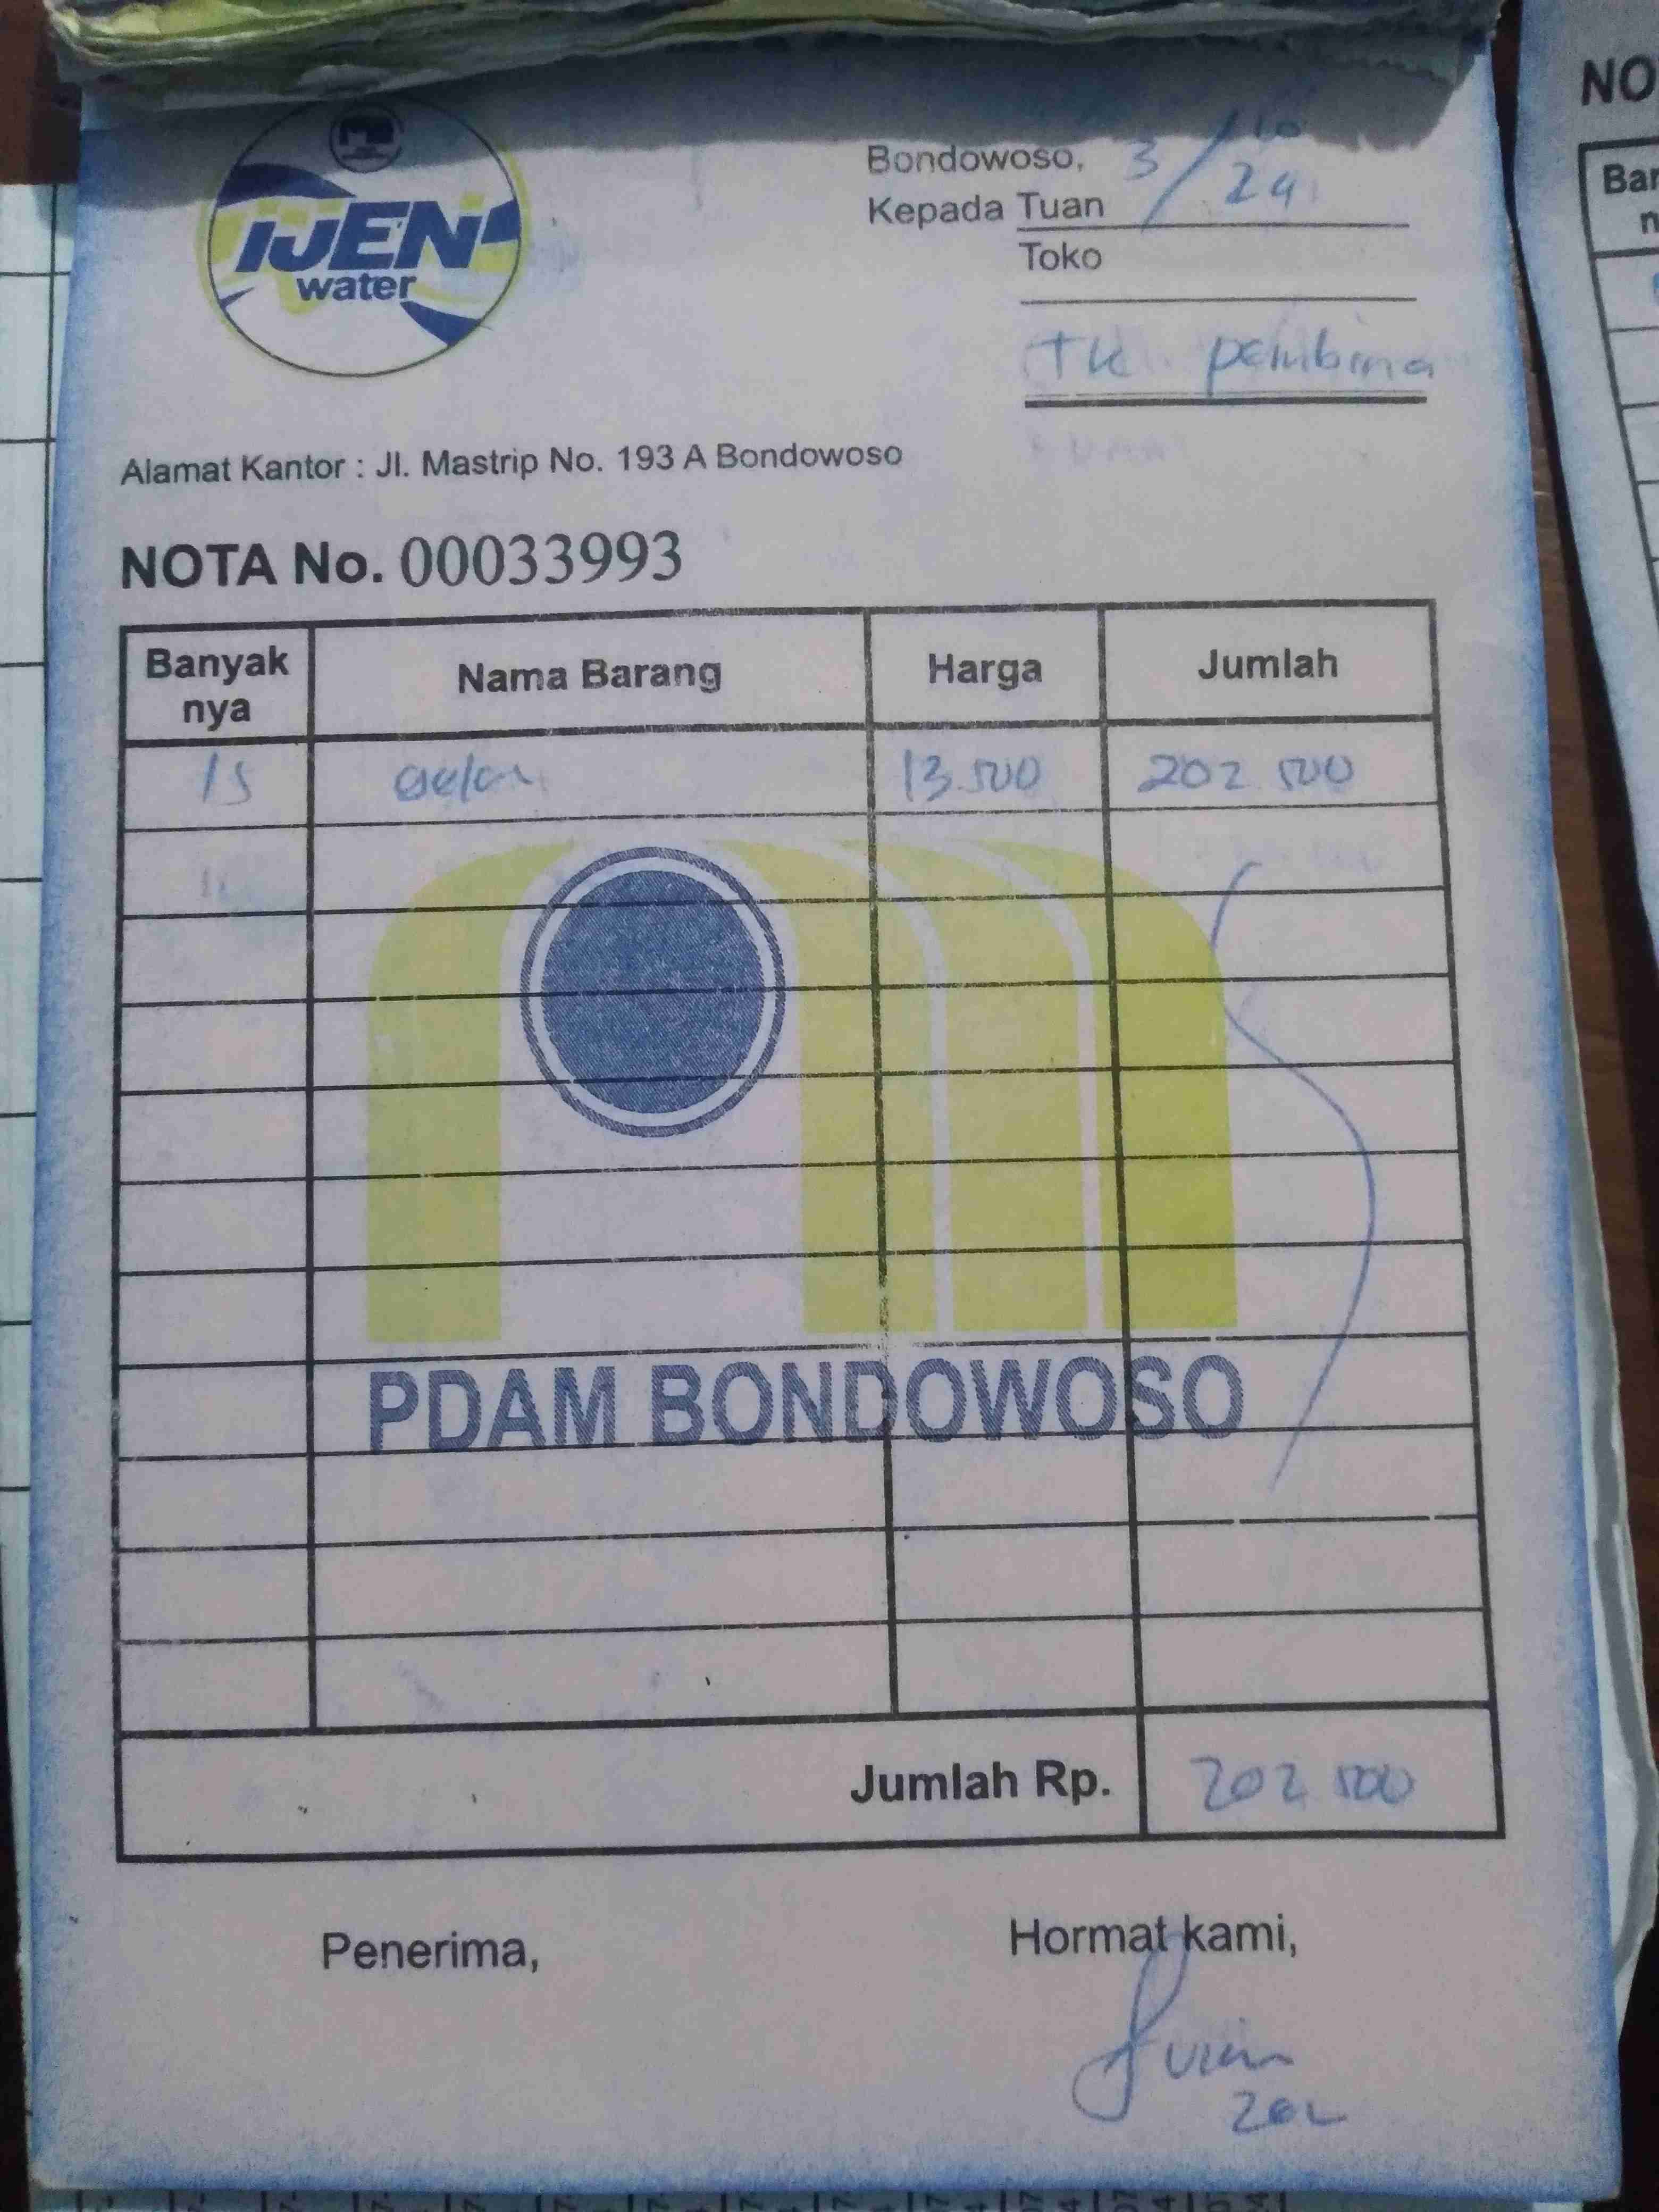 IJEN
water
Bondowoso, 3/10
24
Kepada Tuan
Toko
TK. pembina
Alamat Kantor : Jl. Mastrip No. 193 A Bondowoso
NOTA No. 00033993
Banyak nya Nama Barang Harga Jumlah
15 13.500 202.500
PDAM BONDOWOSO
Jumlah Rp. 202.500
Penerima, Hormat kami,
NO
Bar
n